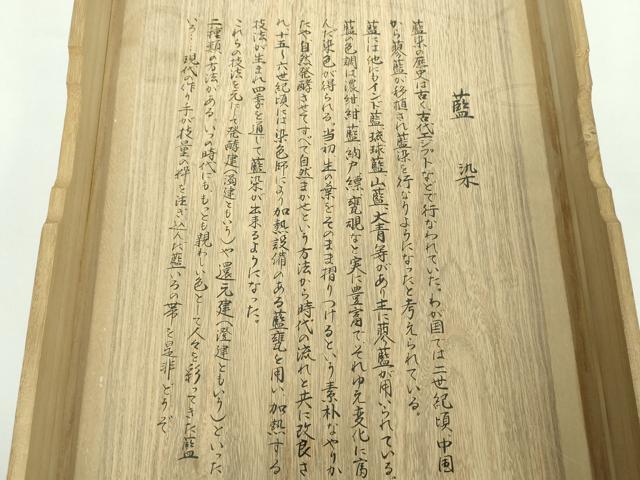 藍染
藍染の歴史は古く古代エジプトなどで行なわれていた。わが国では二世紀頃中国
から蓼藍が移植され藍染を行なりようになったと考えられている。
藍には他にもインド藍、琉球藍、山藍、大青等があり主に蓼藍が用いられている。
藍の色調は濃紺、紺、藍、納戸、縹、甕覗など実に豊富でそれゆえ変化に富
んだ染色が得られる。当初、生の葉をそのまま摺りつけるという素朴なやりか
たや自然発酵させてすべて自然まかせという方法から時代の流れと共に改良さ
れ十五〜六世紀頃には染色師により加熱設備のある藍甕を用い加熱する
技法が生まれ四季を通して藍染が出来るようになった。
これらの技法を元にして発酵建(濁建ともいう)や還元建(澄建ともいう)といった
二種類の方法がある。いつの時代にも、もっとも親わしい色として人々を彩ってきた藍
いろ…現代の作り手が技量の粋を注ぎ込んだ藍いろの帯を是非どうぞ